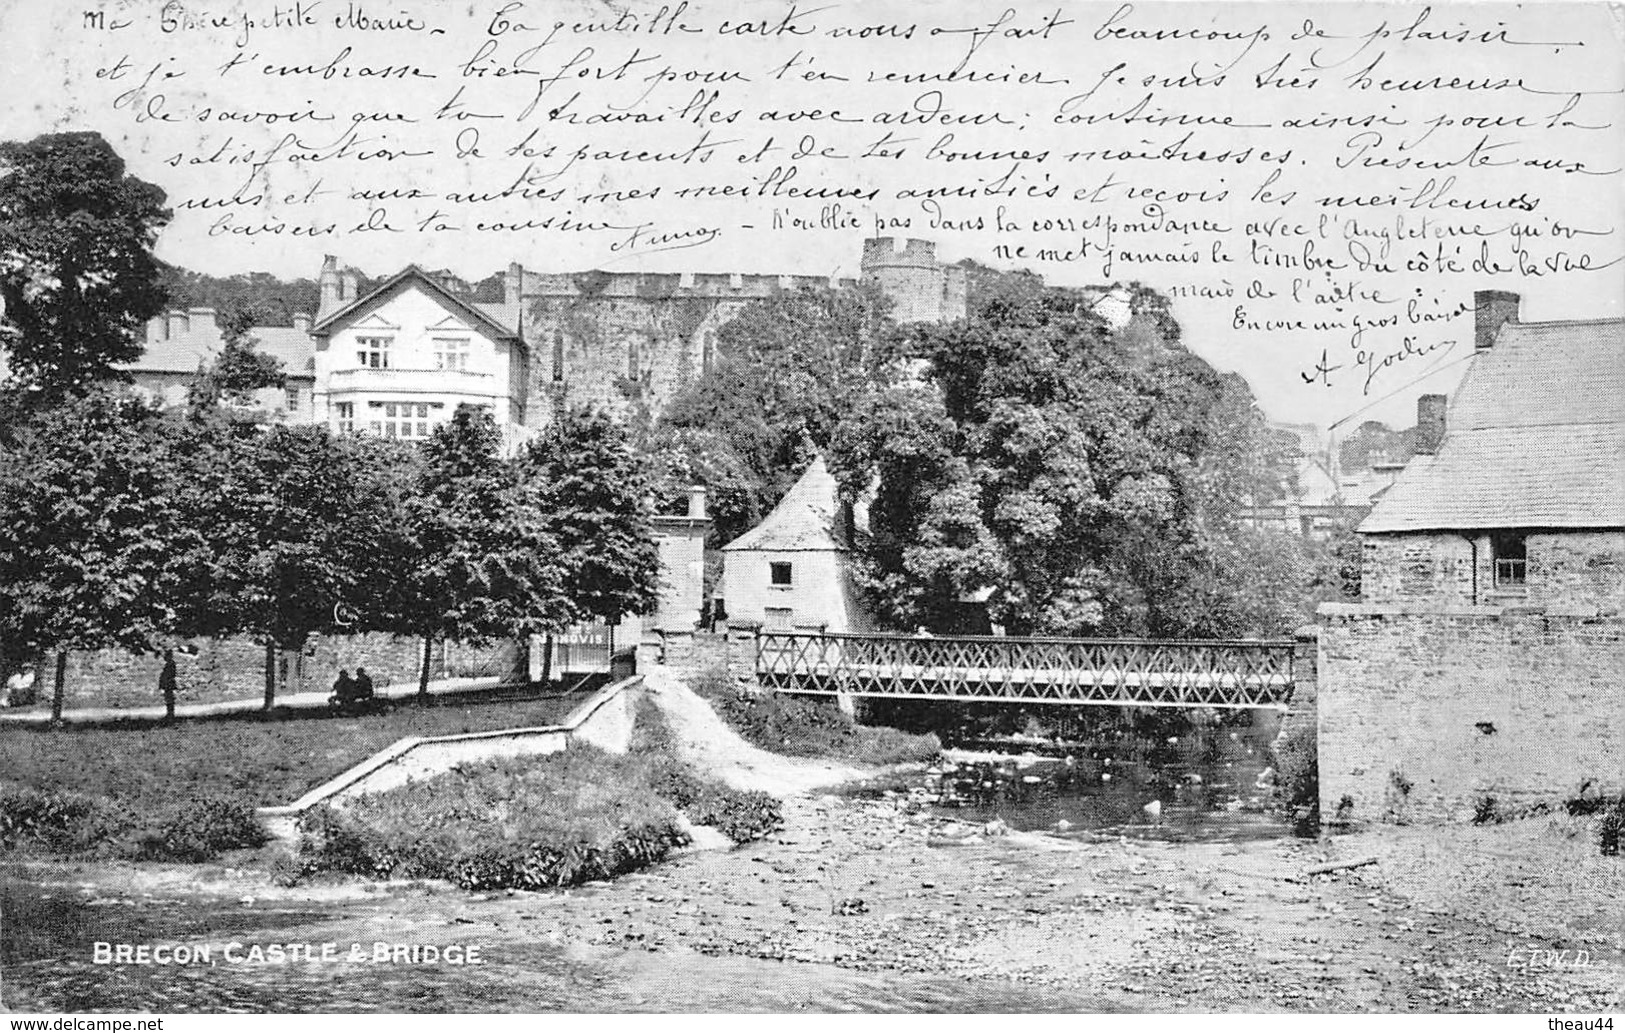 Ma Chère petite Marie - Ta gentille carte nous a fait beaucoup de plaisir
et je t'embrasse bien fort pour t'en remercier. Je suis très heureuse
de savoir que tu travailles avec ardeur ; continue ainsi pour la
satisfaction de tes parents et de tes bonnes maîtresses. Présente aux
uns et aux autres mes meilleures amitiés et reçois les meilleurs
baisers de ta cousine
- N'oublie pas dans la correspondance avec l'Angleterre qu'on
ne met jamais le timbre du côté de la vue
mais de l'autre.
Encore un gros baiser
A Godin
HOVIS
BRECON, CASTLE & BRIDGE.
E.T.W.D.
theau44